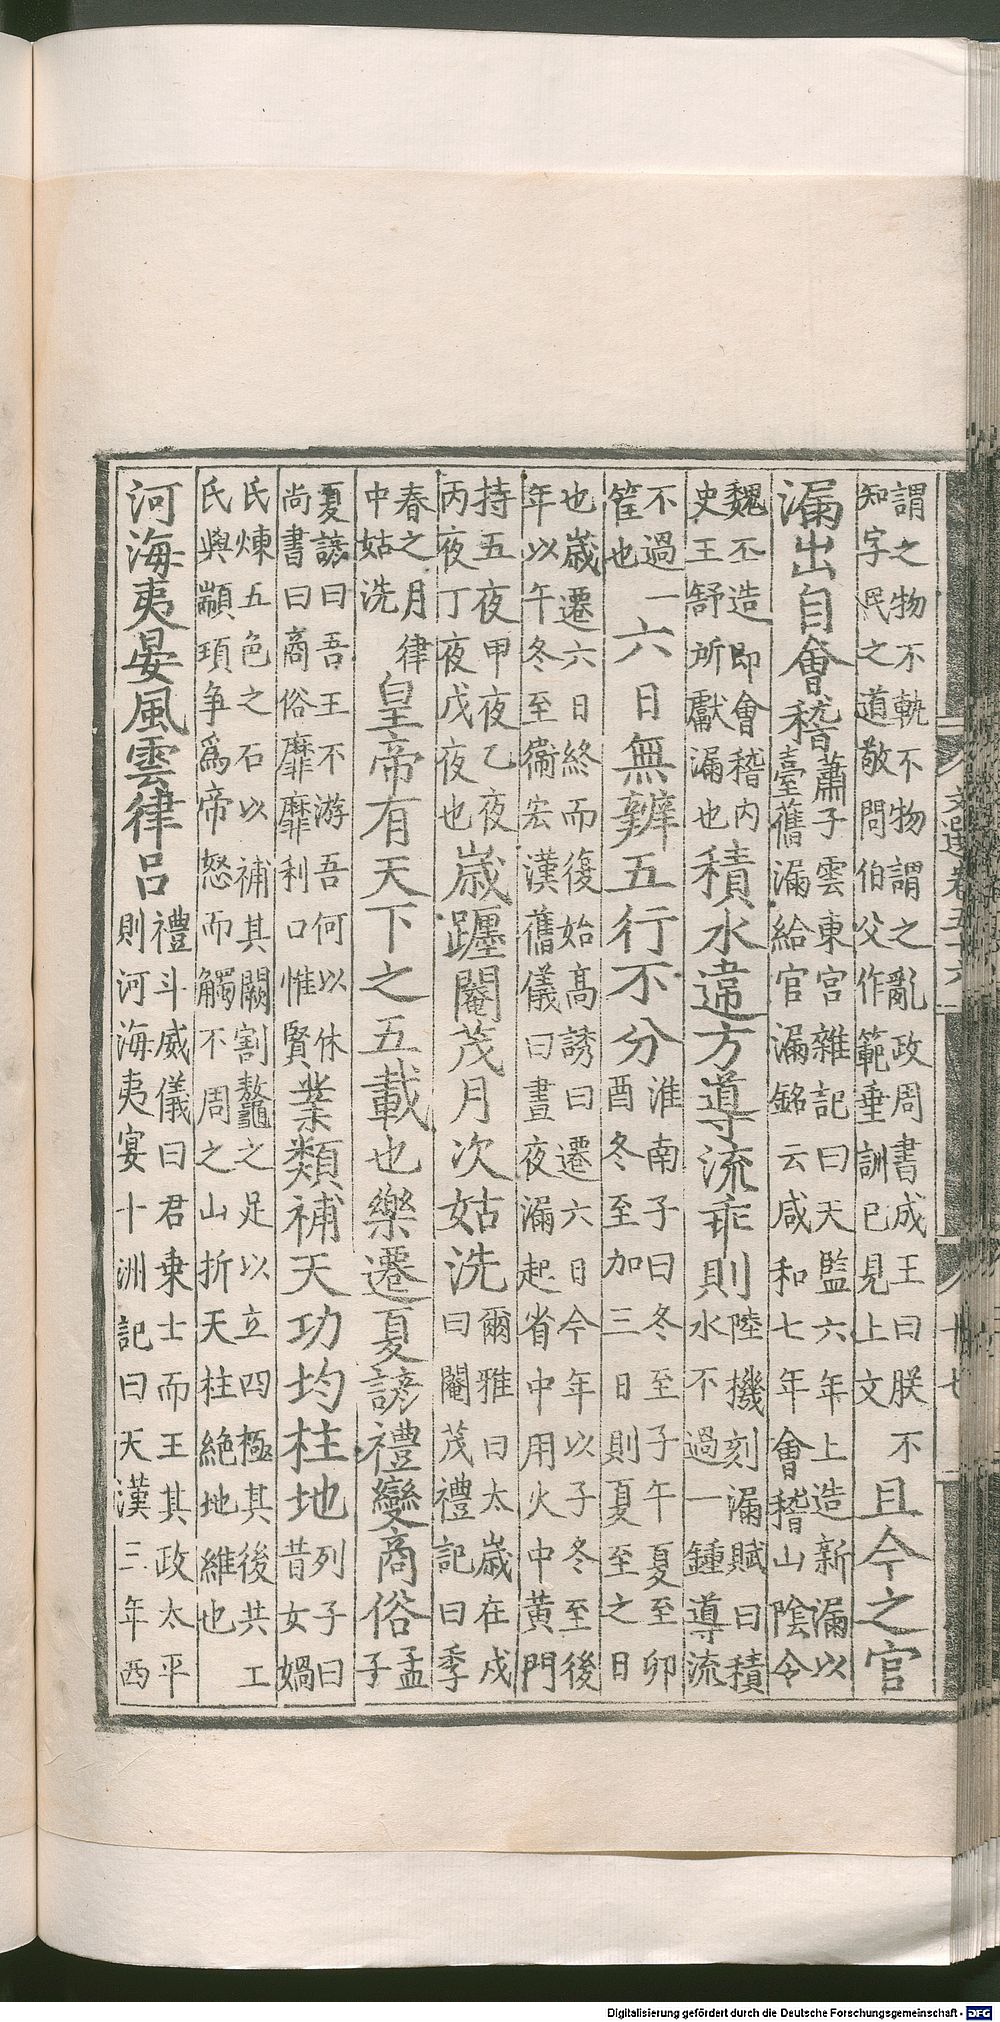 謂之物不軌不物謂之亂政周書成王曰朕不知字民之道敬問伯父作範垂訓已見上文且今之官
漏出自會稽蕭子雲東宮雜記曰天監六年上造新漏以臺舊漏給官漏銘云咸和七年會稽山陰令
魏丕造即會稽内史王舒所獻漏也積水違方導流乖則陸機刻漏賦曰積水不過一鍾導流
不過一筳也六日無辨五行不分淮南子曰冬至子午夏至卯酉冬至加三日則夏至之日
也歲遷六日終而復始高誘曰遷六日今年以子冬至後年以午冬至衛宏漢舊儀曰晝夜漏起省中用火中黃門
持五夜甲夜乙夜丙夜丁夜戊夜也歲躔閹茂月次姑洗爾雅曰太歲在戌曰閹茂禮記曰季
春之月律中姑洗皇帝有天下之五載也樂遷夏諺禮變商俗孟子
夏諺曰吾王不游吾何以休尚書曰商俗靡靡利口惟賢業類補天功均柱地列子曰昔女媧
氏煉五色之石以補其闕割鼇之足以立四極其後共工氏與顓頊争爲帝怒而觸不周之山折天柱絶地維也
河海夷晏風雲律呂禮斗威儀曰君乗土而王其政太平則河海夷宴十洲記曰天漢三年西
文選卷五十六
Digitalisierung gefördert durch die Deutsche Forschungsgemeinschaft - DFG